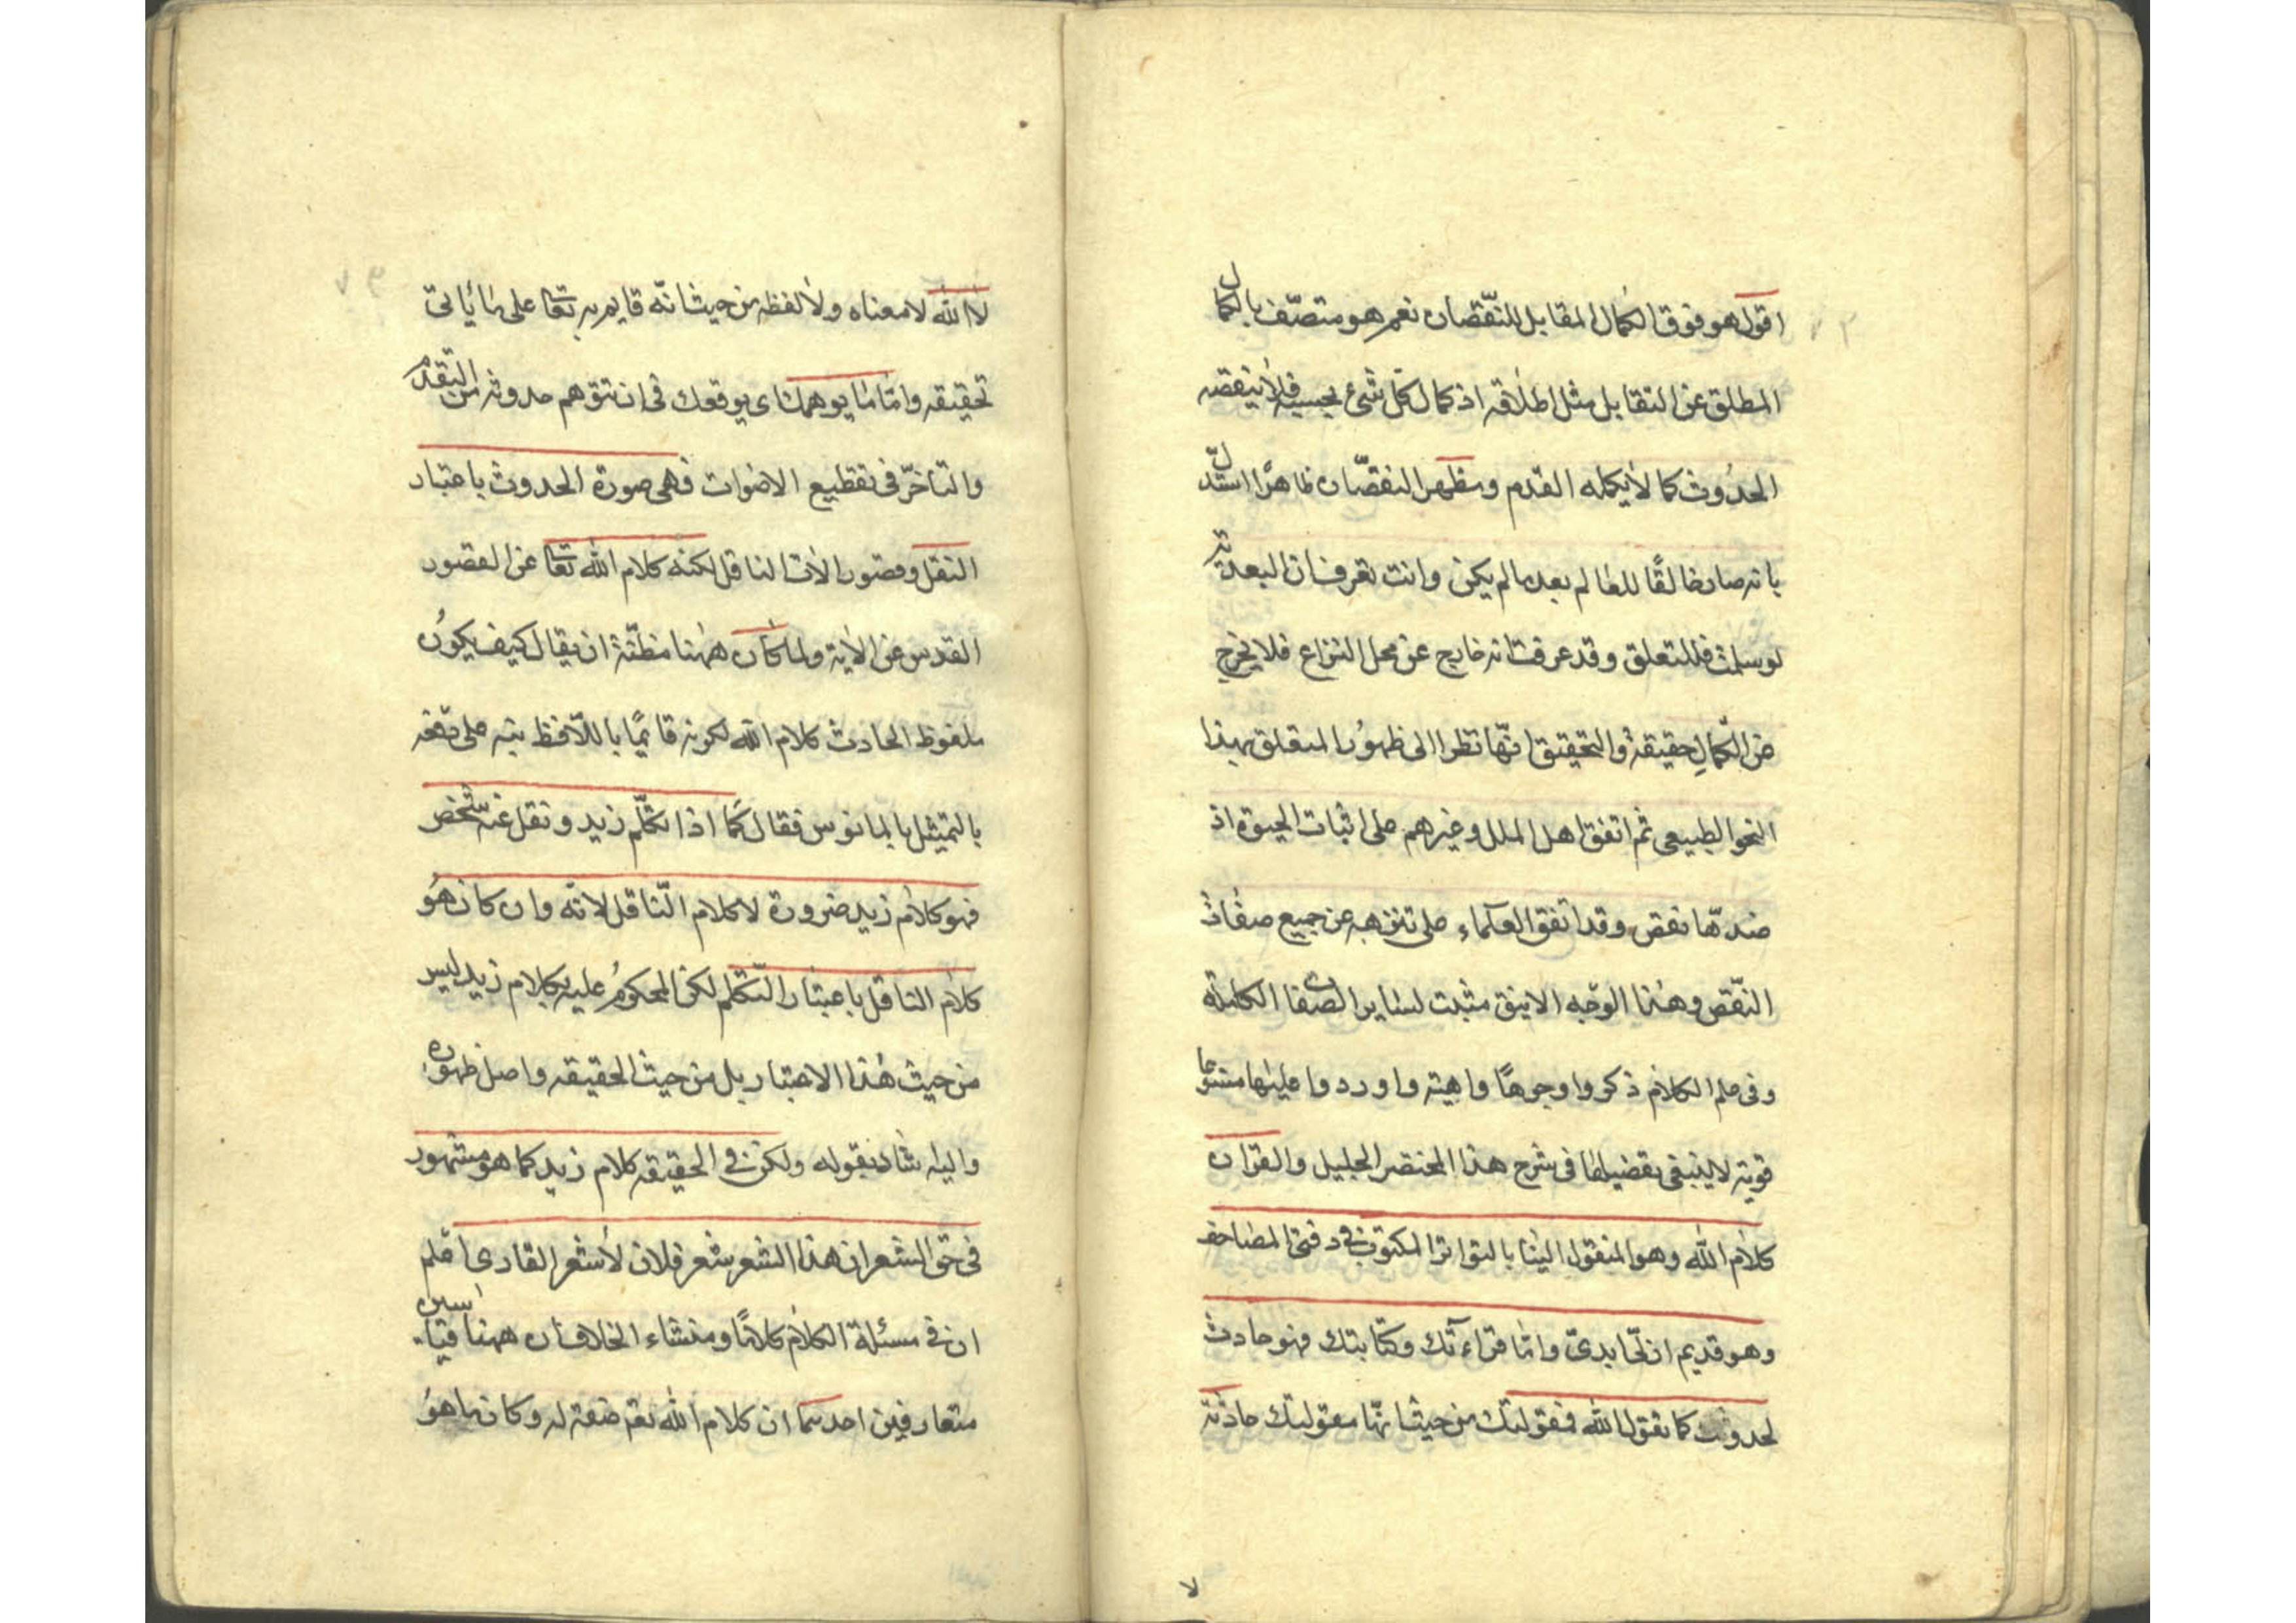 اقول هو فوق الكمال المقابل للنقصان نعم هو متصف بالكمال
المطلق عن التقابل مثل اطلاقه اذ كمال كل شئ بحسبه فلا ينقصه
الحدوث كما لا يكمله القدم ومظهر النقصان ظاهرا استدل
بانه صار خالقا للعالم بعد ما لم يكن وانت تعرف ان البعدية
لو سلمت فللتعلق وقد عرفت انه خارج عن محل النزاع فلا يخرج
عن الكمال حقيقة والتحقيق انها نظرا الى ظهور المتعلق بهذا
النحو الطبيعى ثم اتفق اهل الملل وغيرهم على اثبات الحيوة اذ
ضدها نقص وقد اتفق العلماء على تنزهه عن جميع صفات
النقص وهذا الوجه الانيق مثبت لساير الصفات الكاملة
وفى علم الكلام ذكروا وجوها واهية واوردوا عليها منوعا
قوية لا ينبغى تفضيلها فى شرح هذا المختصر الجليل والقران
كلام الله وهو المنقول الينا بالتواتر المكتوب فى دفتى المصاحف
وهو قديم ازلى ابدى واما قراءتك وكتابتك فهو حادث
لحدوثك كما تقول الله فمقولتك من حيث انها مقولتك حادثة
لا
لا الله لا معناه ولا لفظه من حيث انه قايم به تعا على ما ياتى
تحقيقه واما ما يوهمك اى يوقعك فى ان تتوهم حدوثه من التقدم
والتاخر فى تقطيع الاصوات فهى صورة الحدوث باعتبار
النقل وقصور الات الناقل لكنه كلام الله تعا عن القصور
القدس عن الاية ولما كان ههنا مظنة ان يقال كيف يكون
ملفوظ الحادث كلام الله لكونه قايما باللافظ نبه على دفعه
بالتمثيل بالمانوس فقال كما اذا تكلم زيد ونقل عنه شخص
فهو كلام زيد ضرورة لا كلام الناقل لانه وان كان هو
كلام الناقل باعتبار التكلم لكن المحكوم عليه بكلام زيد ليس
من حيث هذا الاعتبار بل من حيث الحقيقه واصل ظهوره
واليه شار بقوله ولكن فى الحقيقة كلام زيد كما هو مشهور
فى حق الشعر ان هذا الشعر شعر فلان لا شعر القارى اعلم
ان فى مسئلة الكلام كلاما ومنشاء الخلاف ان ههنا قياسين
متعارفين احدهما ان كلام الله تعم صفة له وكان ما هو